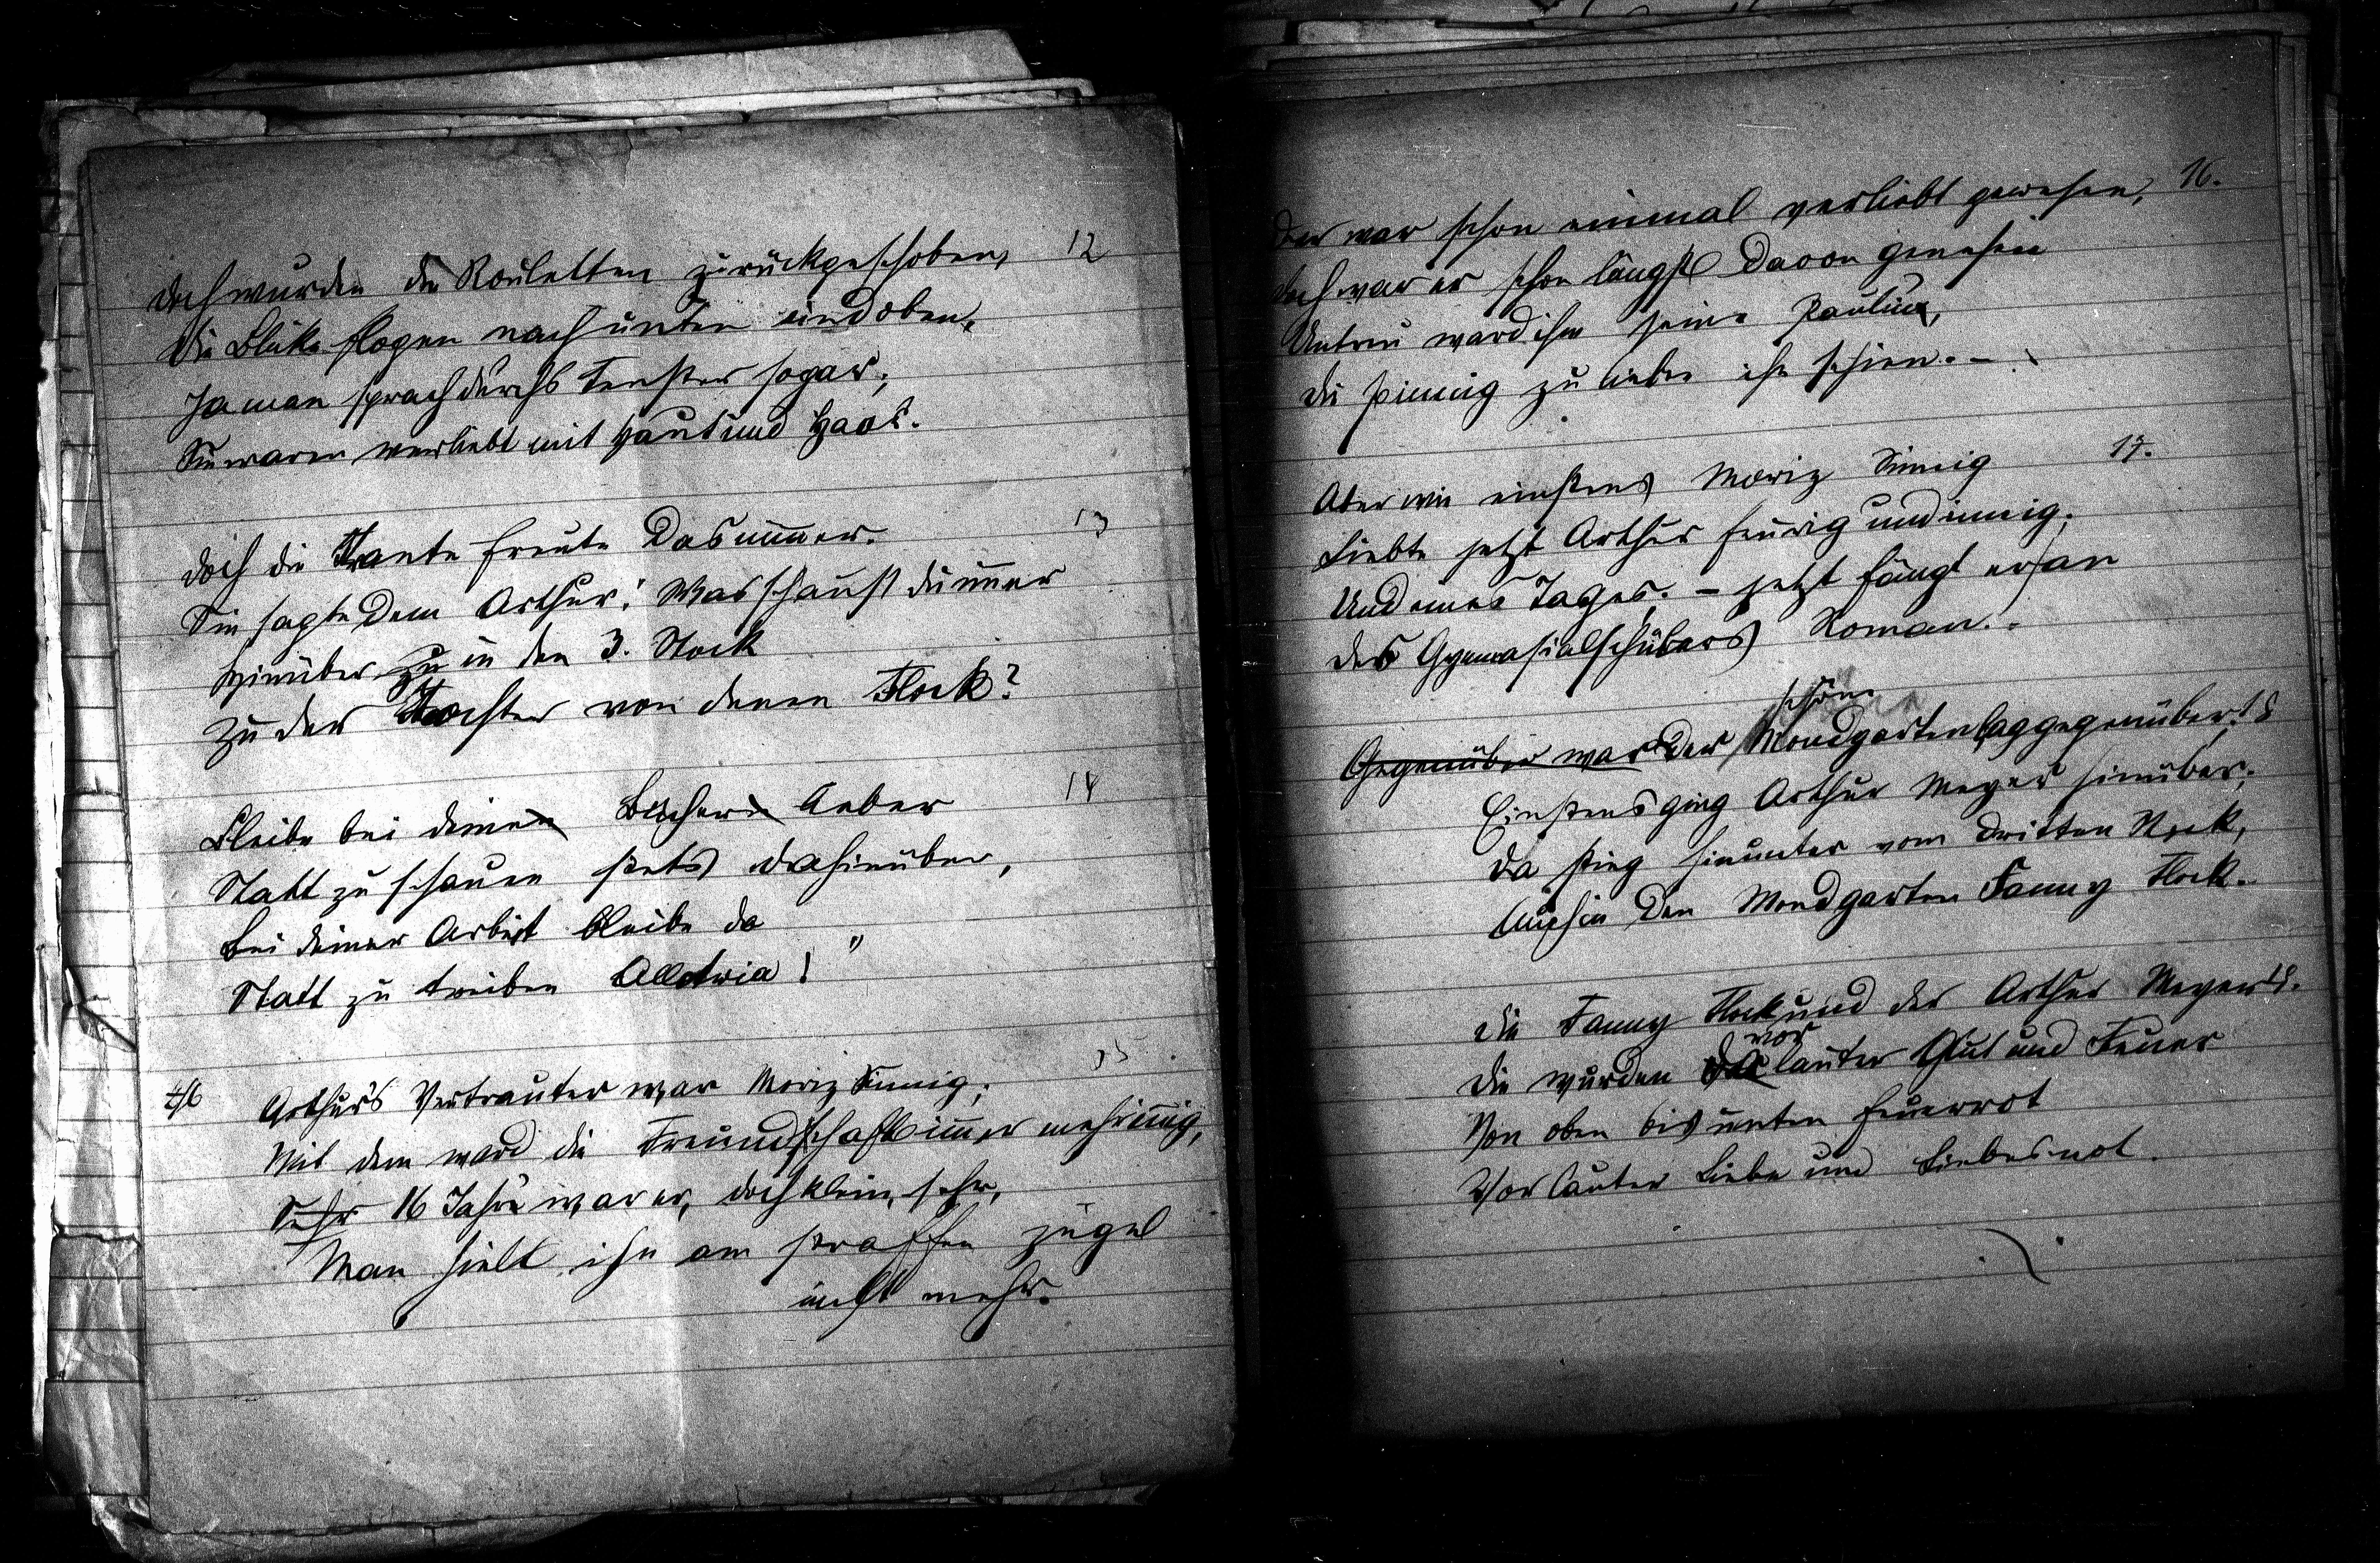 12
Doch wurden die Rouletten zurückgeschoben,
Die Blicke flogen nach unten und oben,
Ja man sprach durchs Fenster sogar,
Sie waren verliebt mit Haut und Haar.
13
Doch die Tante freute das nimmer.
Sie sagte dem Arthur: Was schaust du immer
Hinüber zu in den 3. Stock
Zu der Tochter von denen Flock?
14
Bleibe bei deinen Büchern lieber
Statt zu schauen stets da hinüber,
Bei deiner Arbeit bleibe da
Statt zu treiben Allotria! "
15
Arthur's Vertrauter war Moriz Sinnig,
Mit dem ward die Freundschaft immer mehr innig,
Sehr 16 Jahre war er, doch klein sehr,
Man hielt ihn am straffen Zügel
nicht mehr.
16.
Der war schon einmal verliebt gewesen,
Doch war er schon längst davon genesen
Untreu ward ihm seine Pauline,
Die zu lieben ihn schien. -
17.
Aber wie einstens Moriz Sinnig
Liebte jetzt Arthur feurig und innig.
Und eines Tages. - jetzt fängt er an
Des Gymnasialschülers Roman.
schöne
Gegenüber war Der Mondgarten lag gegenüber. 18
Einstens ging Arthur Meyer hinüber;
Da stieg hinunter vom dritten Stock,
Auch in den Mondgarten Fanny Flock.
Die Fanny Flock und der Arthur Meyer 19.
vor
Die wurden lauter Glut und Feuer
Von oben bis unten feuerrot
Vor lauter Liebe und Liebesnot.